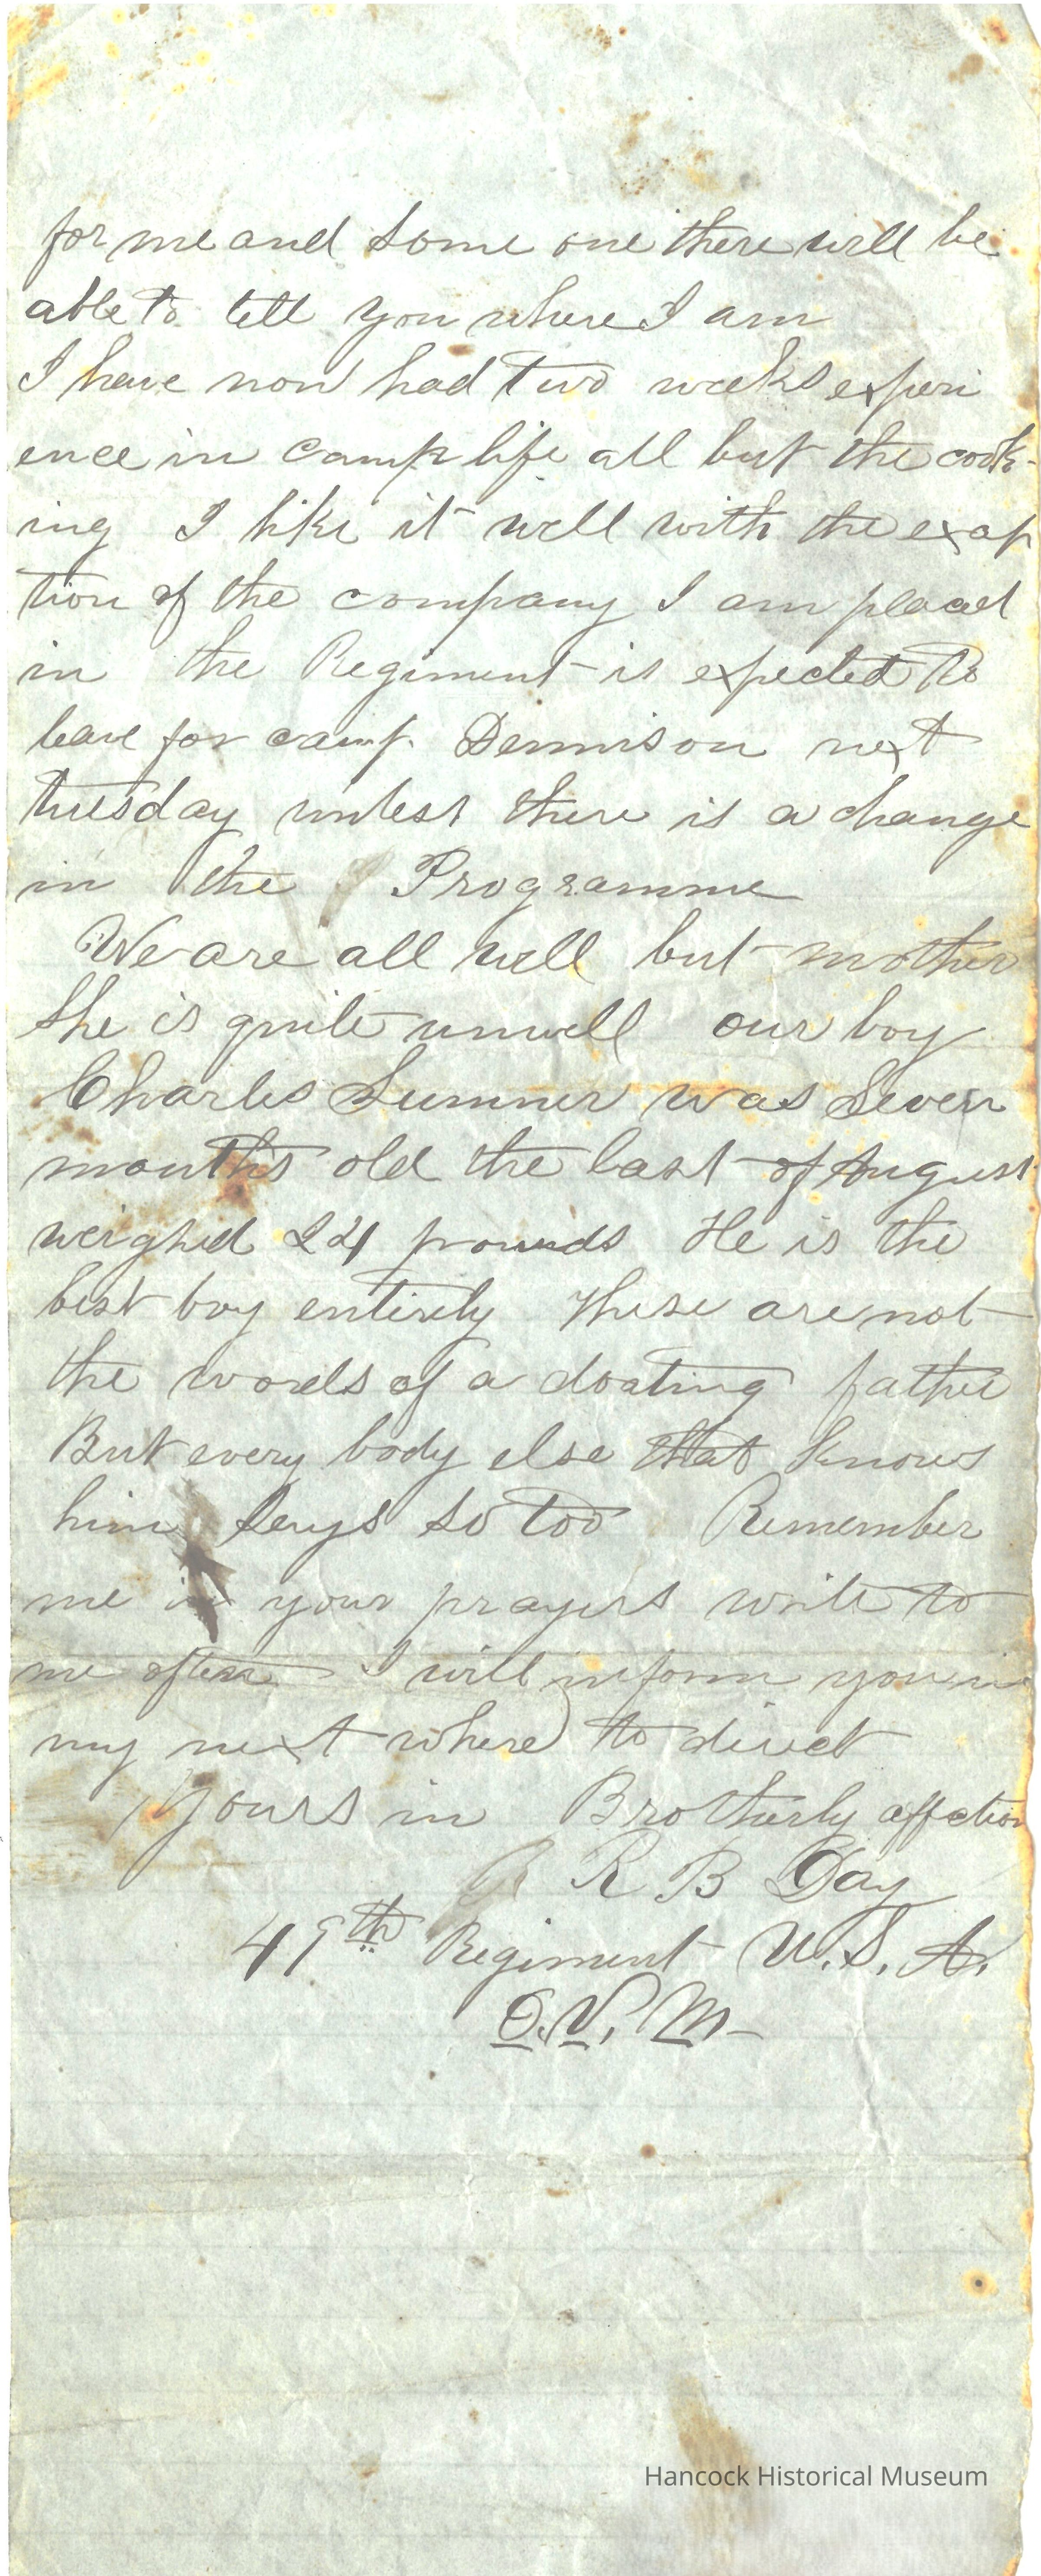 for me and some one there will be
able to tell you where I am
I have now had two weeks experi
ence in camp life all but the cook-
ing I like it well with the exap
tion of the company I am placed
in the Regiment is expected to
leave for camp Dennison next
tuesday unless there is a change
in the Programme
We are all well but mother
She is quite unwell our boy
Charles Sumner was Seven
months old the last of August
weighed 24 pounds He is the
best boy entirely These are not
the words of a doating father
But every body else that knows
him says so too Remember
me in your prayers write to
me often I will inform you in
my next where to direct
Yours in Brotherly affection
R B Day
49th Regiment U.S. A.
O.V. M
Hancock Historical Museum